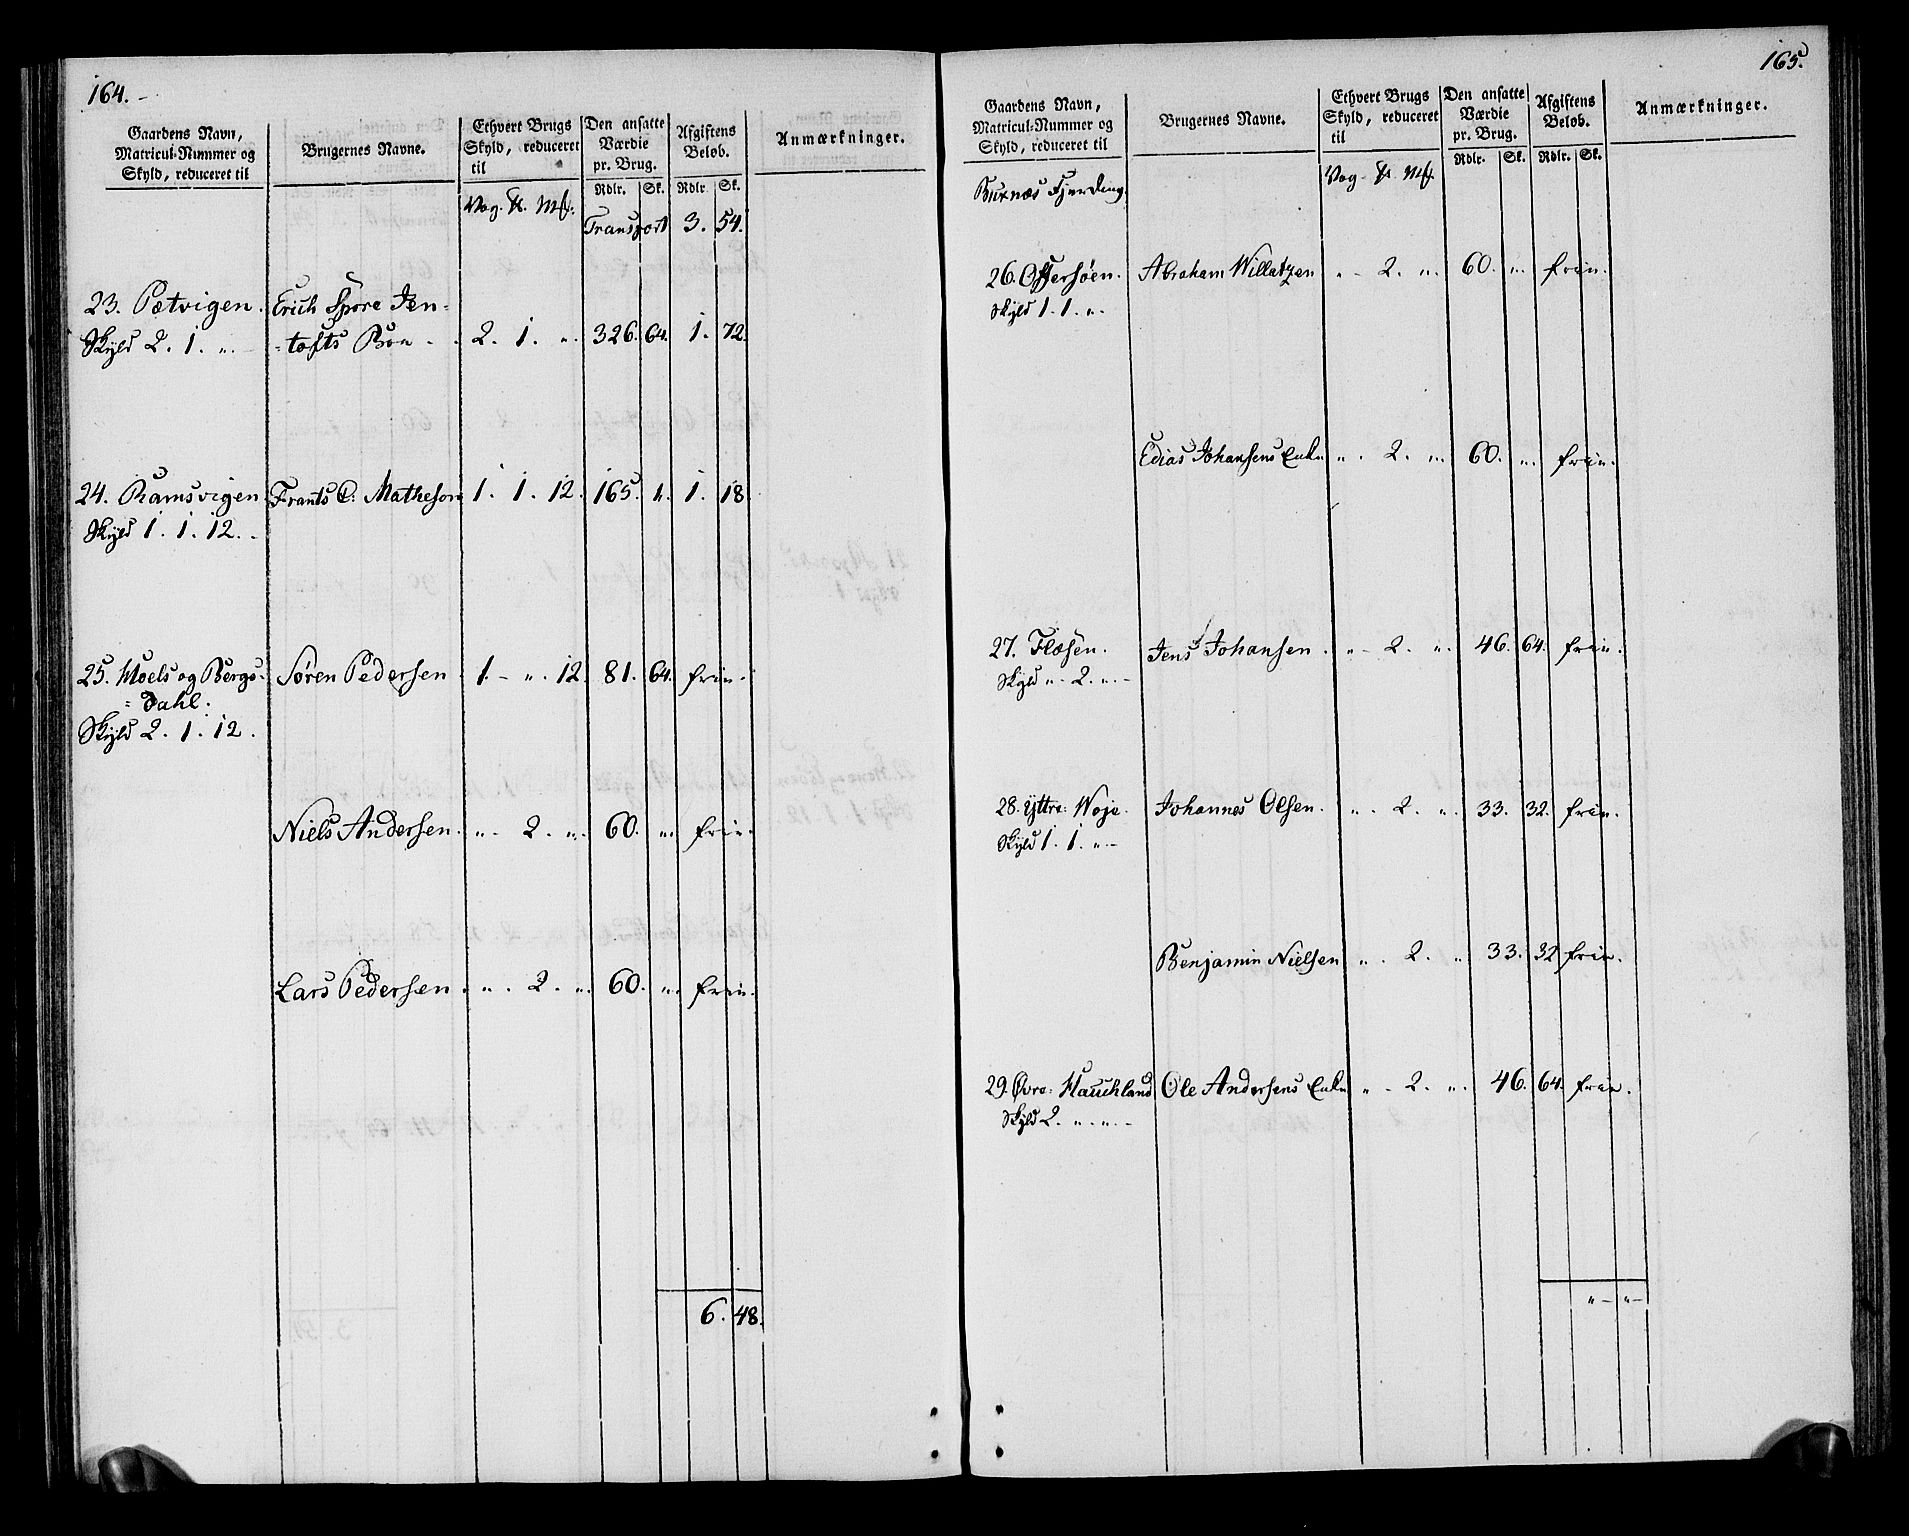 164.
Gaardens Navn, Matricul-Nummer og Skyld, reduceret til
Brugernes Navne.
Ethvert Brugs Skyld, reduceret til
Den ansatte Værdie pr. Brug.
Afgiftens Beløb.
Anmærkninger.
Rdlr. Sk. Rdlr. Sk.
Vog. ℔. M.
Transport 3. 54.
23. Pætvigen. Erich Spore Jen-
Skyld 2. 1. „. - =tofts Boe - . 2. 1. „. 326. 64. 1. 72.
24. Ramsvigen Frants C: Matheson 1. 1. 12. 165. „. 1. 18
Skyld 1. 1. 12. -
25. Moels og Bergs- Søren Pedersen . 1. - „. 12. 81. 64. frie.
=dahl.
Skyld 2. 1. 12.
Niels Andersen. „. 2. „. 60. „. frie.
Lars Pedersen. „. 2. „. 60. „. frie.
6. 48.
165.
Gaardens Navn, Matricul-Nummer og Skyld, reduceret til
Brugernes Navne.
Ethvert Brugs Skyld, reduceret til
Den ansatte Værdie pr. Brug.
Afgiftens Beløb.
Anmærkninger.
Rdlr. Sk. Rdlr. Sk.
Vog. ℔. M.
Buxnæs Fjerding.
26. Offersøen. Abraham Willatzen „ - 2. „. 60. „. frie.
Skyld 1. 1. „.
Edias Johansens Enke „. 2. „. 60. „. frie.
27. Flæsen. Jens Johansen. „ - 2. „. 46. 64. frie.
Skyld „ - 2. „. -
28. Yttre: Woje. Johannes Olsen. „. 2. „. 33. 32. frie.
Skyld 1. 1. „. -
Benjamin Nielsen „. 2. „ 33. 32 frie.
29. Øvre: Hauchland Ole Andersens Enke „ - 2. „. 46. 64. frie.
Skyld 2. „. „. -
„ - „ -